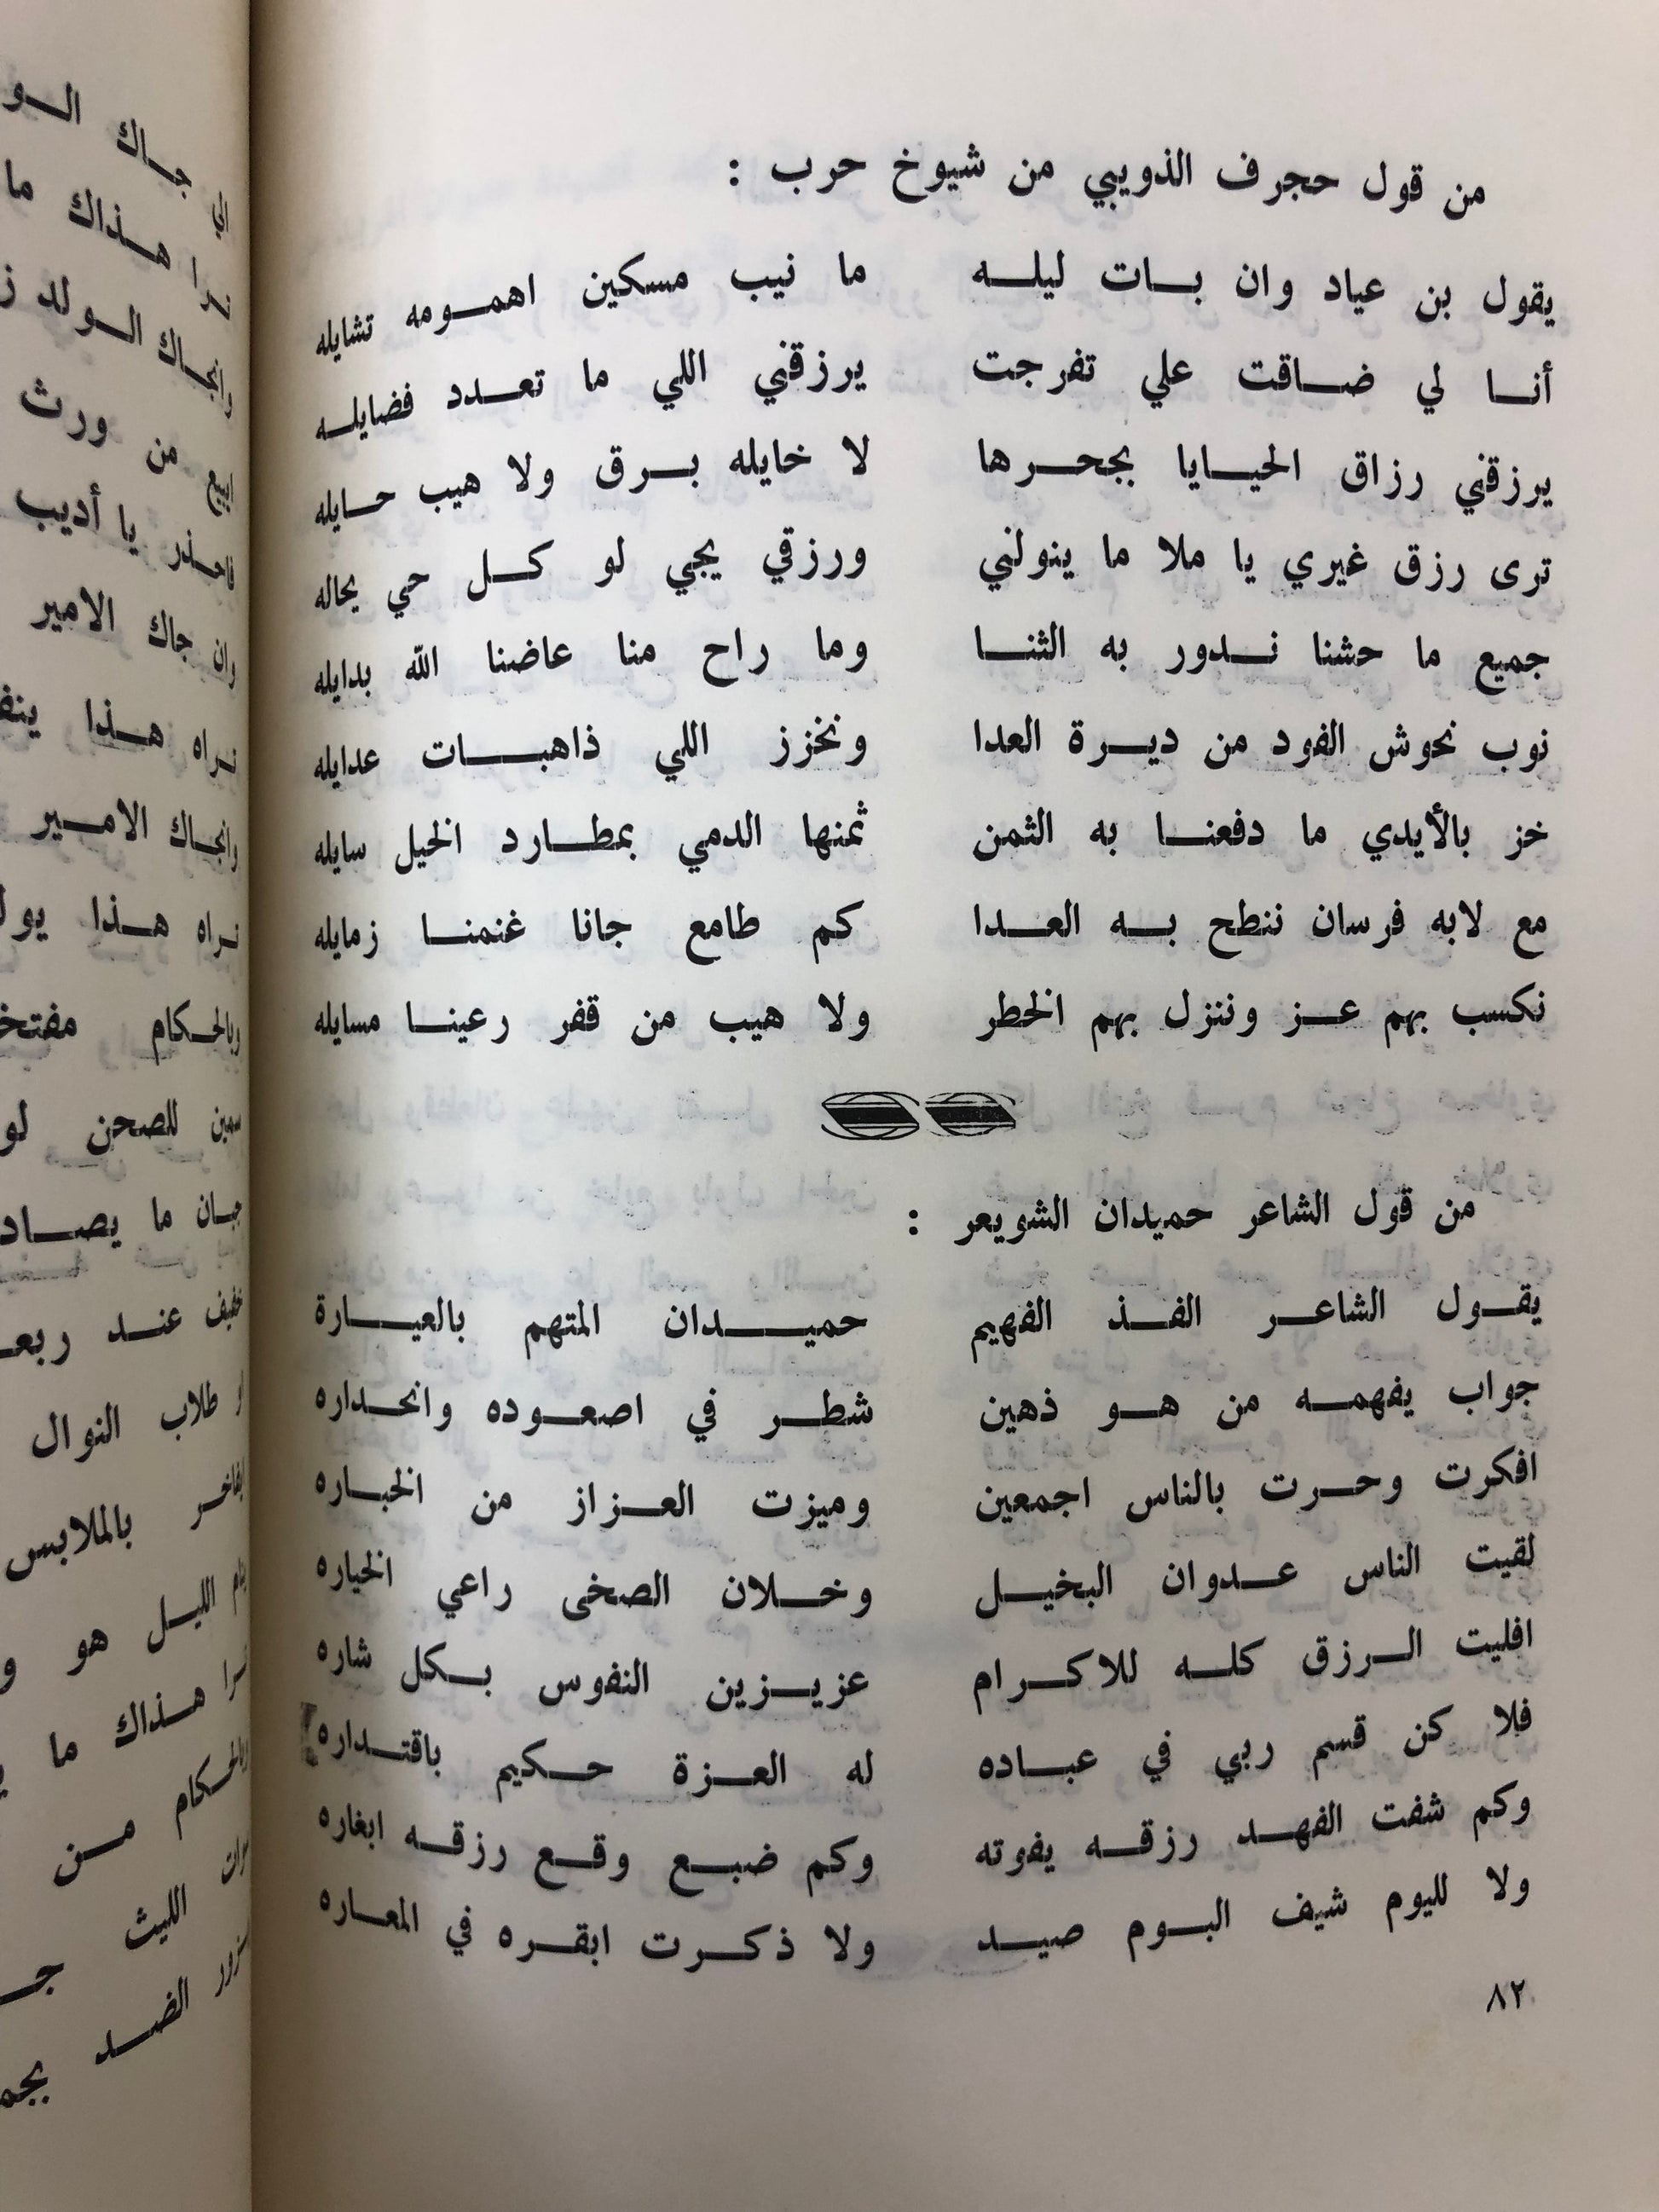 من قول حجرف الذويبي من شيوخ حرب :
يقول بن عياد وان بات ليله ما نيب مسكين اهمومه تشايله
أنا لي ضاقت علي تفرجت يرزقني اللي ما تعدد فضايله
يرزقني رزاق الحيايا بجحرها لا خايله برق ولا هيب حايله
ترى رزق غيري يا ملا ما ينولني ورزقي يجي لو كل حي يحاله
جميع ما حشنا ندور به الثنا وما راح منا عاضنا الله بدايله
نوب نحوش الفود من ديرة العدا ونخزز اللي ذاهبات عدايله
خز بالأيدي ما دفعنا به الثمن ثمنها الدمي بمطارد الخيل سايله
مع لابه فرسان ننطح به العدا كم طامع جانا غنمنا زمايله
نكسب بهم عز وننزل بهم الخطر ولا هيب من قفر رعينا مسايله
من قول الشاعر حميدان الشويعر :
يقول الشاعر الفذ الفهيم حميدان المتهم بالعيارة
جواب يفهمه من هو ذهين شطر في اصعوده وانحداره
افكرت وحرت بالناس اجمعين وميزت العزاز من الخباره
لقيت الناس عدوان البخيل وخلان الصخى راعي الخياره
افليت الرزق كله للاكرام عزيزين النفوس بكل شاره
فلا كن قسم ربي في عباده له العزة حكيم باقتداره
وكم شفت الفهد رزقه يفوته وكم ضبع وقع رزقه ابغاره
ولا لليوم شيف البوم صيد ولا ذكرت ابقره في المعاره
٨٢
الي جاك الو
نرا هذاك ما
وانجاك الولد
ابيع من ورث
فاحذر يا أديب
وان جاك الامير
نراه هذا
وانجاك الامير
نراه هذا
وبالحكام
سمين للصحن لو
جبان ما
خفيف عند
طلاب النوال
بالملابس
الليل هو
هذاك ما
وبالحكام من
الليث
الضد